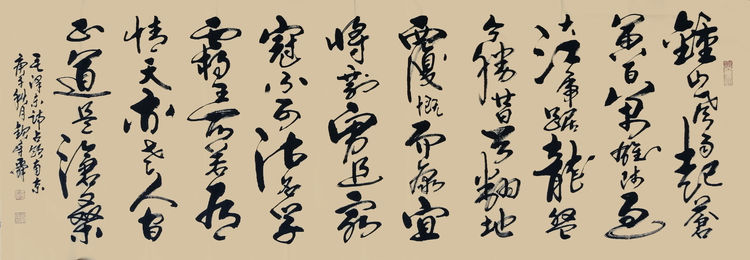 鍾山風雨起蒼
黃百萬雄師過
大江虎踞龍盤
今勝昔天翻地
覆慨而慷宜
將剩勇追窮
寇不可沽名學
霸王天若有
情天亦老人間
正道是滄桑
毛澤東詩占領南京
庚子秋月